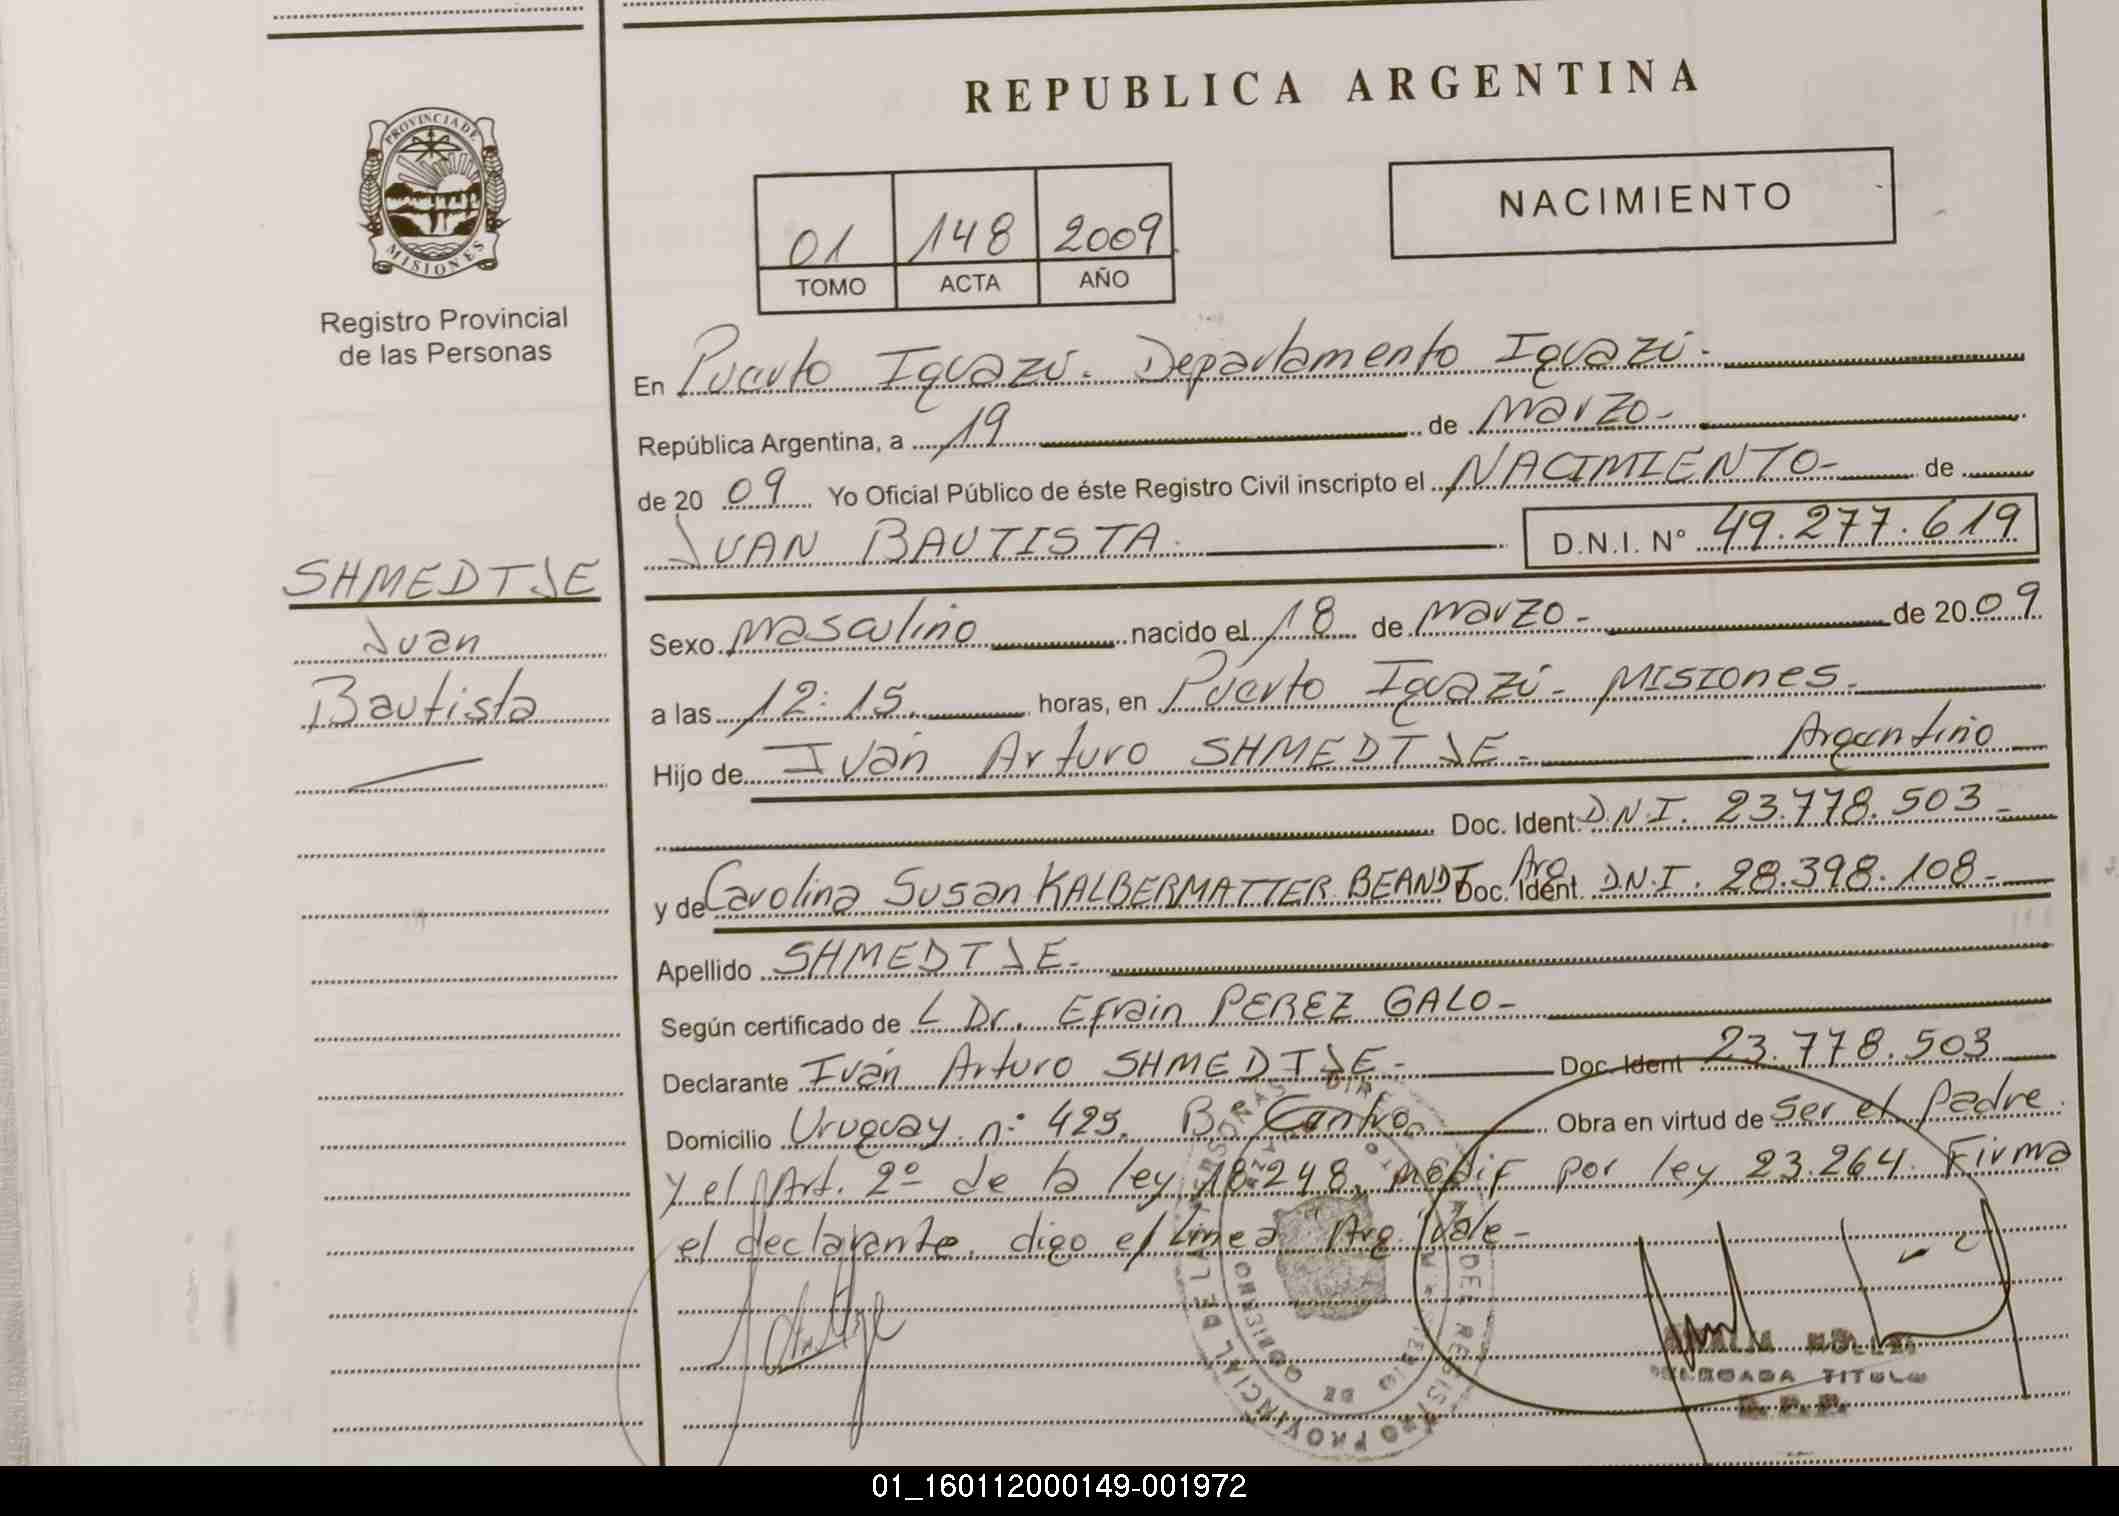 REPUBLICA ARGENTINA
PROVINCIA DE
MISIONES
Registro Provincial
de las Personas
01 148 2009
TOMO ACTA AÑO
NACIMIENTO
En Puerto Iguazú. Departamento Iguazú.
República Argentina, a 19 de Marzo
de 20 09 Yo Oficial Público de éste Registro Civil inscripto el NACIMIENTO de
JUAN BAUTISTA. D.N.I. N° 49.277.619
SHMEDTJE
Juan
Bautista
Sexo Masculino nacido el 18 de Marzo de 2009
a las 12:15 horas, en Puerto Iguazú - Misiones
Hijo de Iván Arturo SHMEDTJE Argentino
Doc. Ident. D.N.I. 23.778.503
y de Carolina Susan KALBERMATTER BEANDT Arg Doc. Ident. D.N.I. 28.398.108
Apellido SHMEDTJE
Según certificado de L Dr. Efrain PEREZ GALO
Declarante Iván Arturo SHMEDTJE Doc. Ident 23.778.503
Domicilio Uruguay n: 425. B. Centro Obra en virtud de ser el Padre
y el Art. 2º de la ley 18.248, modif por ley 23.264. Firma
el declarante. digo e/ linea "Arg" Vale
DELEGADA TITULAR
01_160112000149-001972